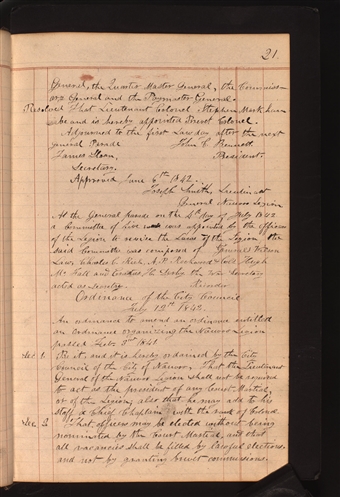 21.
General, the Quarter Master General, the Commissa-
ry General and the Paymaster General.
Resolved That Lieutenant Colonel Stephen Mark
be and is hereby appointed Brevet Colonel.
Adjourned to the first Law day after the next
General Parade John C. Bennett
James Sloan, President.
Secretary.
Approved June 6th 1842.
Joseph Smith, Lieutenant
General Nauvoo Legion
At the General parade on the 4th day of July 1842
a Committee of five was appointed by the officers
of the Legion to revise the Laws of the Legion the
said Committee was composed of General Wilson
Law, Charles C. Rich, A. P. Rockwood & Col. Hugh
Mc Fall and the War Secretary
acted as Secretary.
Ordinance of the City Council
July 12th 1842.
An ordinance to amend an ordinance entitled
an Ordinance organizing the Nauvoo Legion
passed Feby 3rd 1841.
Sec 1. Be it, and it is hereby ordained by the City
Council of the City of Nauvoo, That the Lieutenant
General of the Nauvoo Legion shall not be required
to act as the president of any Court Martial,
or of the Legion, also that he may add to his
Staff a Chief Chaplain with the rank of Colonel
Sec 2. That officers may be elected without being
nominated by the Court Martial, and that
all vacancies shall be filled by lawful elections,
and not by granting brevet commissions.